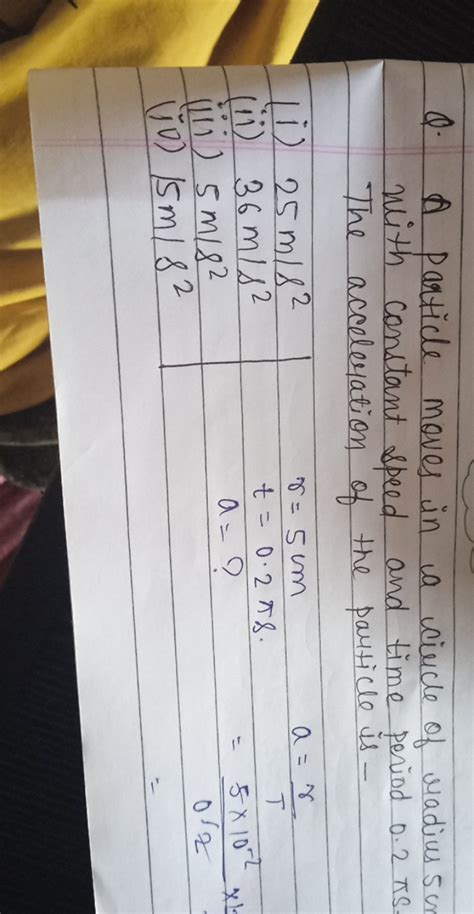 Q. A particle moves in a circle of radius 5 cm
with constant speed and time period 0.2 πs
The acceleration of the particle is –
(i) 25 m/s²
(ii) 36 m/s²
(iii) 5 m/s²
(iv) 15 m/s²
r = 5 cm
t = 0.2 πs.
a = ?
a = r/T
= 5 × 10⁻² ×
0.2
=